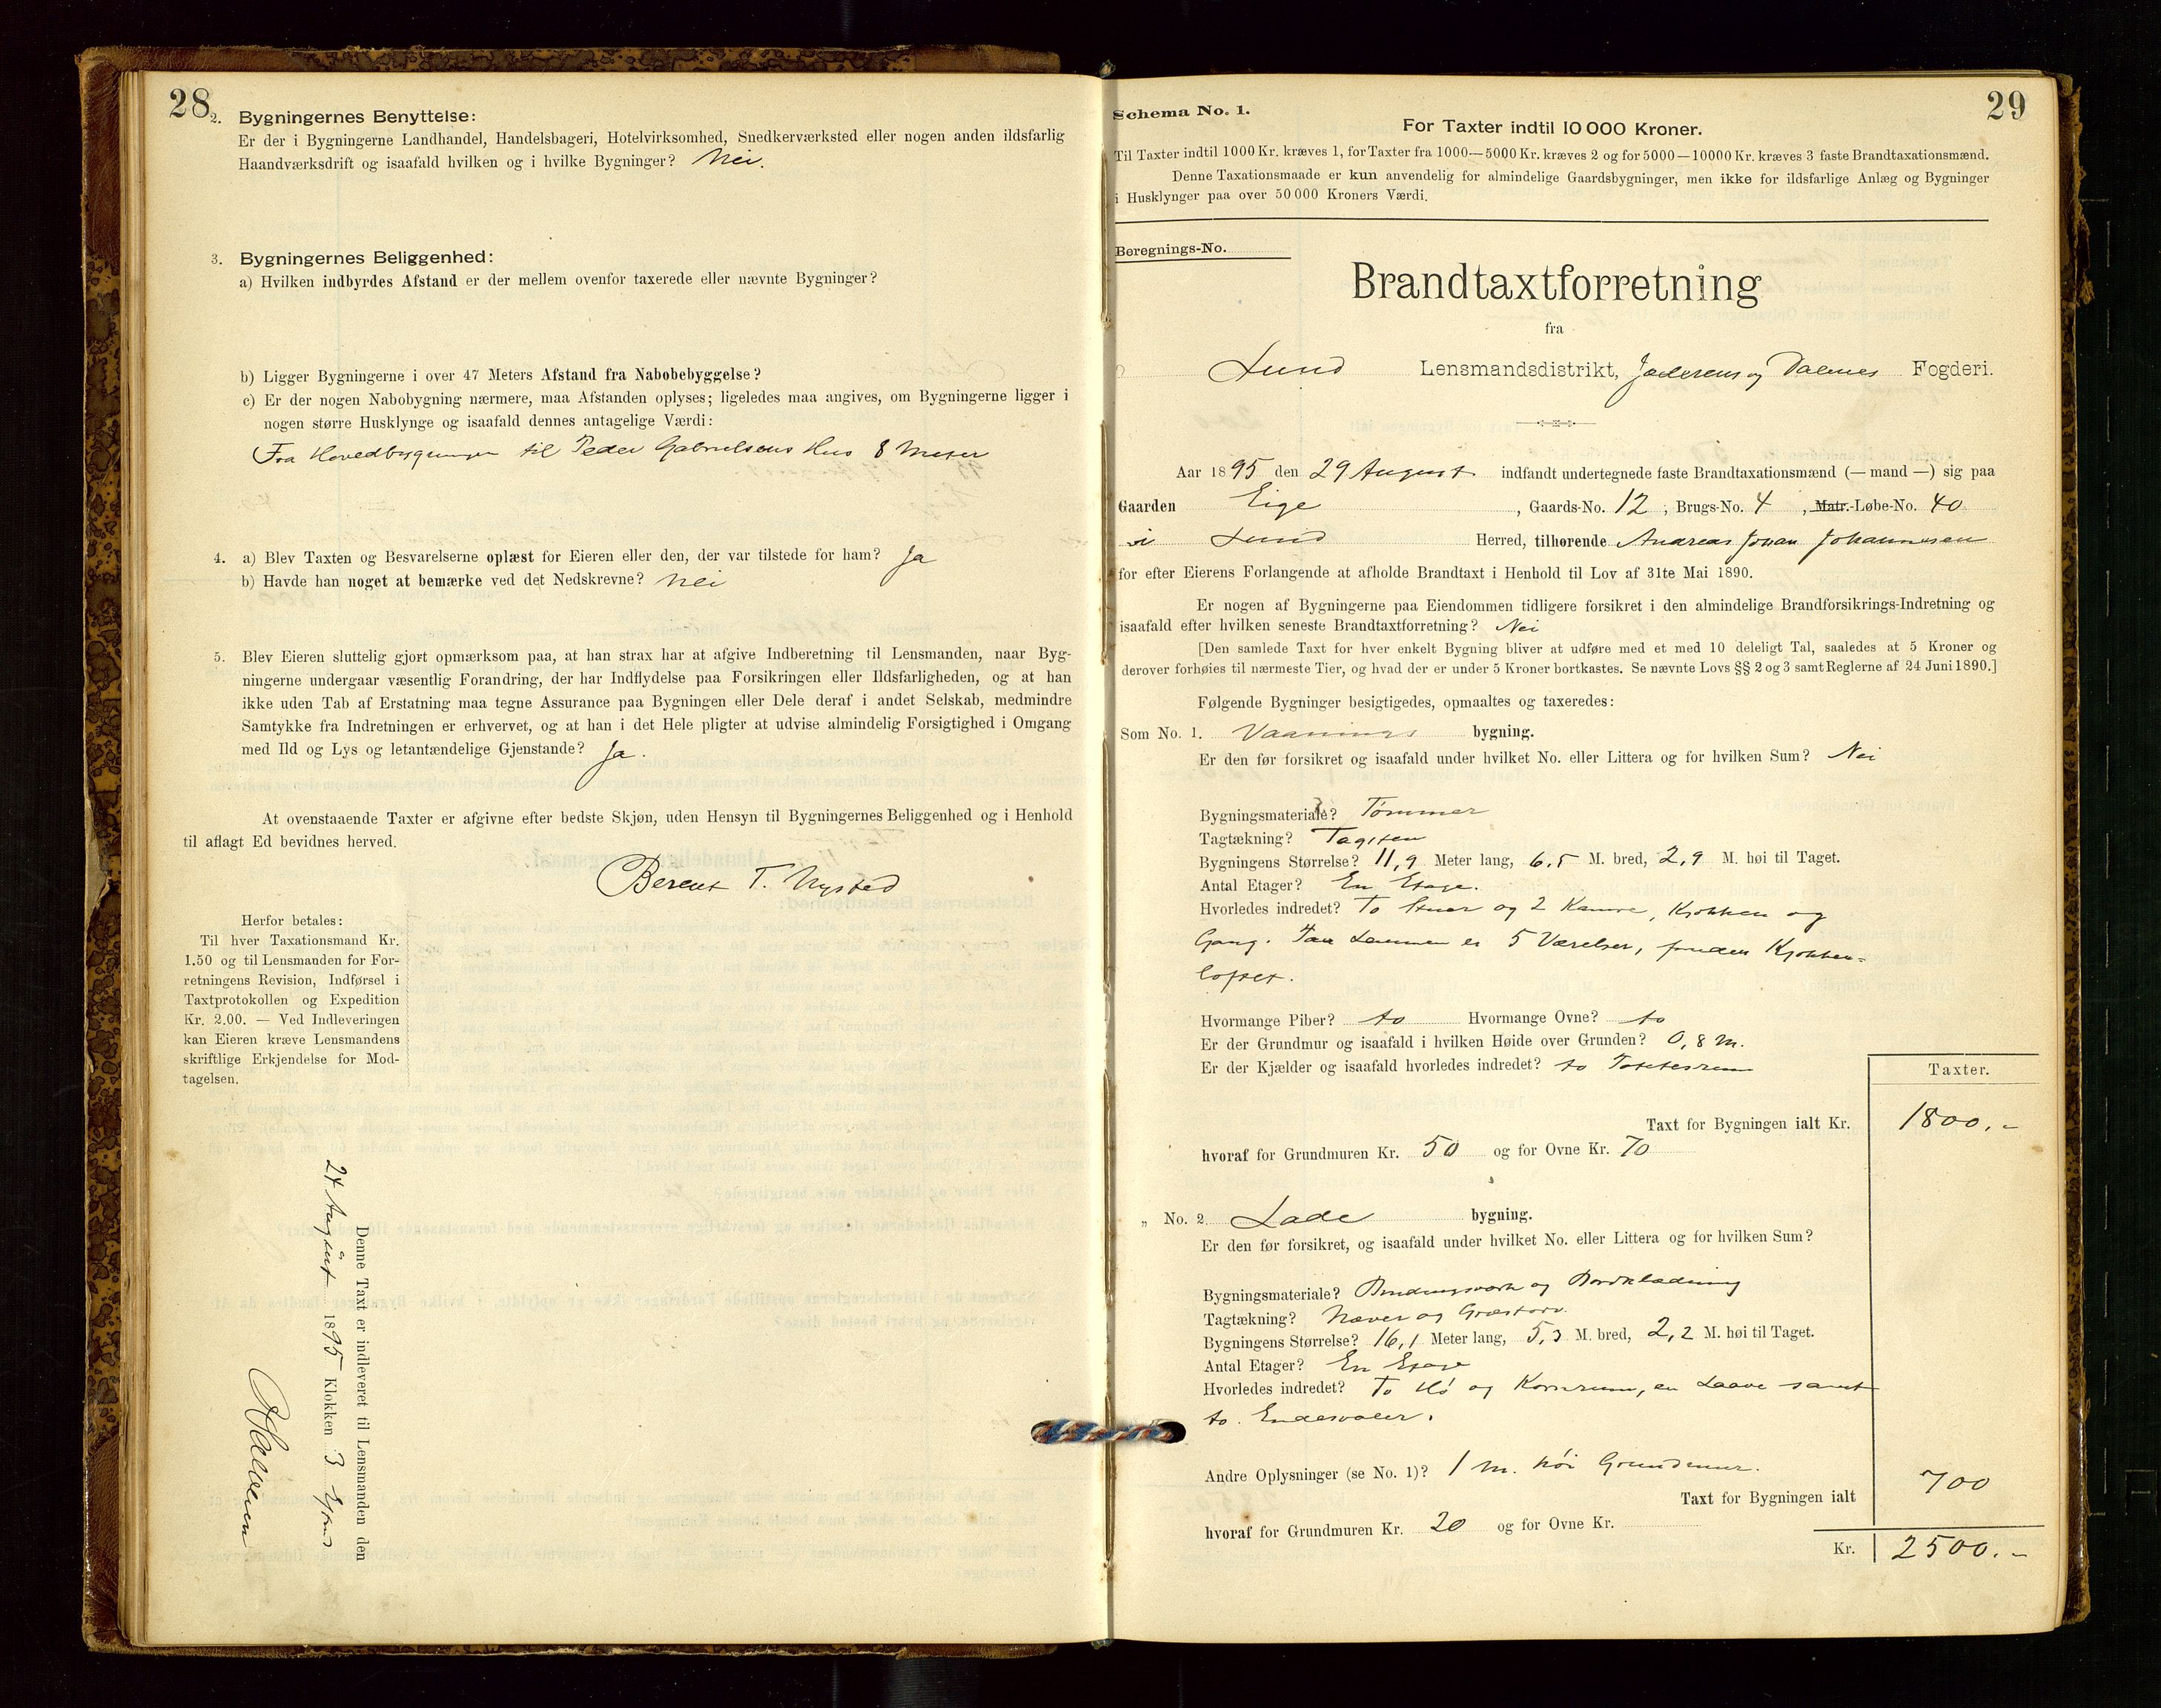 28
2. Bygningernes Benyttelse:
Er der i Bygningerne Landhandel, Handelsbageri, Hotelvirksomhed, Snedkerværksted eller nogen anden ildsfarlig
Haandværksdrift og isaafald hvilken og i hvilke Bygninger? Nei.
3. Bygningernes Beliggenhed:
a) Hvilken indbyrdes Afstand er der mellem ovenfor taxerede eller nævnte Bygninger?
b) Ligger Bygningerne i over 47 Meters Afstand fra Nabobebyggelse?
c) Er der nogen Nabobygning nærmere, maa Afstanden oplyses; ligeledes maa angives, om Bygningerne ligger i
nogen større Husklynge og isaafald dennes antagelige Værdi:
Fra Hovedbygningen til Peder Gabrielsens Hus 8 Meter
4. a) Blev Taxten og Besvarelserne oplæst for Eieren eller den, der var tilstede for ham? Ja
b) Havde han noget at bemærke ved det Nedskrevne? Nei
5. Blev Eieren sluttelig gjort opmærksom paa, at han strax har at afgive Indberetning til Lensmanden, naar Byg-
ningerne undergaar væsentlig Forandring, der har Indflydelse paa Forsikringen eller Ildsfarligheden, og at han
ikke uden Tab af Erstatning maa tegne Assurance paa Bygningen eller Dele deraf i andet Selskab, medmindre
Samtykke fra Indretningen er erhvervet, og at han i det Hele pligter at udvise almindelig Forsigtighed i Omgang
med Ild og Lys og letantændelige Gjenstande? Ja.
At ovenstaaende Taxter er afgivne efter bedste Skjøn, uden Hensyn til Bygningernes Beliggenhed og i Henhold
til aflagt Ed bevidnes herved.
Berent T. Nysted
Herfor betales:
Til hver Taxationsmand Kr.
1.50 og til Lensmanden for For-
retningens Revision, Indførsel i
Taxtprotokollen og Expedition
Kr. 2.00. — Ved Indleveringen
kan Eieren kræve Lensmandens
skriftlige Erkjendelse for Mod-
tagelsen.
Denne Taxt er indleveret til Lensmanden den
24 August 1895 Klokken 3
29
Schema No. 1.
For Taxter indtil 10 000 Kroner.
Til Taxter indtil 1000 Kr. kræves 1, for Taxter fra 1000—5000 Kr. kræves 2 og for 5000—10000 Kr. kræves 3 faste Brandtaxationsmænd.
Denne Taxationsmaade er kun anvendelig for almindelige Gaardsbygninger, men ikke for ildsfarlige Anlæg og Bygninger
i Husklynger paa over 50 000 Kroners Værdi.
Beregnings-No.
Brandtaxtforretning
fra
Lund Lensmandsdistrikt, Jæderens og Dalenes Fogderi.
Aar 1895 den 29 August indfandt undertegnede faste Brandtaxationsmænd (— mand —) sig paa
Gaarden Eige, Gaards-No. 12, Brugs-No. 4, Matr.-Løbe-No. 40
i Lund Herred, tilhørende Andreas Jonan Johannesen
for efter Eierens Forlangende at afholde Brandtaxt i Henhold til Lov af 31te Mai 1890.
Er nogen af Bygningerne paa Eiendommen tidligere forsikret i den almindelige Brandforsikrings-Indretning og
isaafald efter hvilken seneste Brandtaxtforretning? Nei
[Den samlede Taxt for hver enkelt Bygning bliver at udføre med et med 10 deleligt Tal, saaledes at 5 Kroner og
derover forhøies til nærmeste Tier, og hvad der er under 5 Kroner bortkastes. Se nævnte Lovs §§ 2 og 3 samt Reglerne af 24 Juni 1890.]
Følgende Bygninger besigtigedes, opmaaltes og taxeredes:
Som No. 1. Vaanings bygning.
Er den før forsikret og isaafald under hvilket No. eller Littera og for hvilken Sum? Nei
Bygningsmateriale? Tømmer
Tagtækning? Tagsten
Bygningens Størrelse? 11,9 Meter lang, 6,5 M. bred, 2,9 M. høi til Taget.
Antal Etager? En Etage.
Hvorledes indredet? To Stuer og 2 Kamre, Kjøkken og
Gang. Paa Lemmen er 5 Værelser, foruden Kjøkken-
loftet.
Hvormange Piber? to Hvormange Ovne? to
Er der Grundmur og isaafald i hvilken Høide over Grunden? 0,8 M.
Er der Kjælder og isaafald hvorledes indredet? to Potetesrum
Taxter.
Taxt for Bygningen ialt Kr. 1800.-
hvoraf for Grundmuren Kr. 50 og for Ovne Kr. 70
„ No. 2 Lade bygning.
Er den før forsikret, og isaafald under hvilket No. eller Littera og for hvilken Sum?
Bygningsmateriale? Bindingsværk og Bordklædning
Tagtækning? Næver og Græstorv.
Bygningens Størrelse? 16,1 Meter lang, 5,3 M. bred, 2,2 M. høi til Taget.
Antal Etager? En Etage
Hvorledes indredet? To Hø og Kornrum, en Laave samt
to Endesvaler.
Andre Oplysninger (se No. 1)? 1 M. høi Grundmur.
Taxt for Bygningen ialt 700
hvoraf for Grundmuren Kr. 20 og for Ovne Kr.
Kr. 2500.-